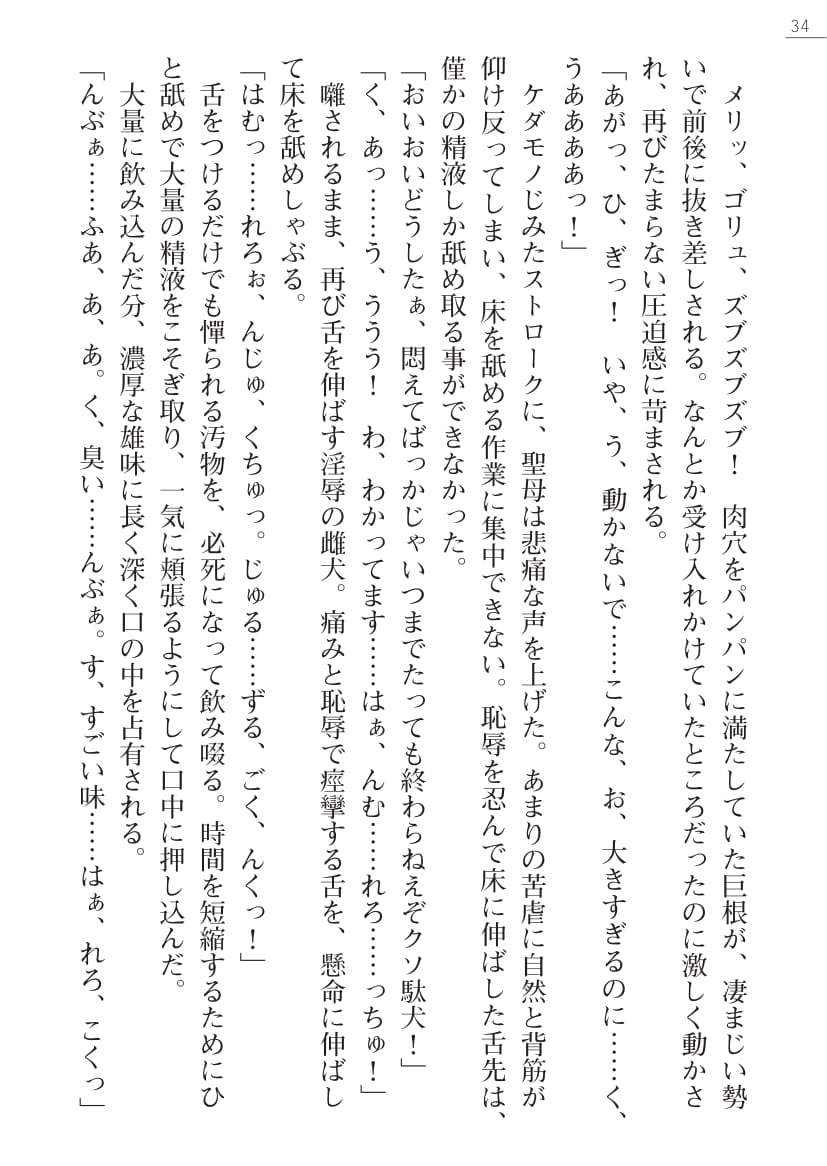 34
　メリッ、ゴリュ、ズブズブズブ！　肉穴をパンパンに満たしていた巨根が、凄まじい勢
いで前後に抜き差しされる。なんとか受け入れかけていたところだったのに激しく動かさ
れ、再びたまらない圧迫感に苛まされる。
「あがっ、ひ、ぎっ！　いや、う、動かないで……こんな、お、大きすぎるのに……く、
うああああっ！」
　ケダモノじみたストロークに、聖母は悲痛な声を上げた。あまりの苦虐に自然と背筋が
仰け反ってしまい、床を舐める作業に集中できない。恥辱を忍んで床に伸ばした舌先は、
僅かの精液しか舐め取る事ができなかった。
「おいおいどうしたぁ、悶えてばっかじゃいつまでたっても終わらねえぞクソ駄犬！」
「く、あっ……う、ううう！　わ、わかってます……はぁ、んむ……れろ……っちゅ！」
　囃されるまま、再び舌を伸ばす淫辱の雌犬。痛みと恥辱で痙攣する舌を、懸命に伸ばし
て床を舐めしゃぶる。
「はむっ……れろぉ、んじゅ、くちゅっ。じゅる……ずる、ごく、んくっ！」
　舌をつけるだけでも憚られる汚物を、必死になって飲み啜る。時間を短縮するためにひ
と舐めで大量の精液をこそぎ取り、一気に頬張るようにして口中に押し込んだ。
　大量に飲み込んだ分、濃厚な雄味に長く深く口の中を占有される。
「んぶぁ……ふあ、あ、あ。く、臭い……んぶぁ。す、すごい味……はぁ、れろ、こくっ」